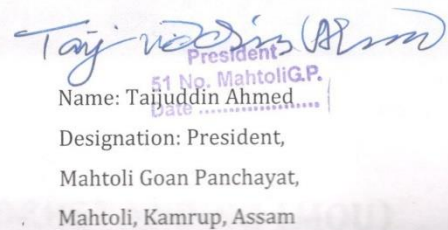 Taijuddin Ahmed
President
51 No. Mahtoli G.P.
Date ....................
Name: Taijuddin Ahmed
Designation: President,
Mahtoli Goan Panchayat,
Mahtoli, Kamrup, Assam